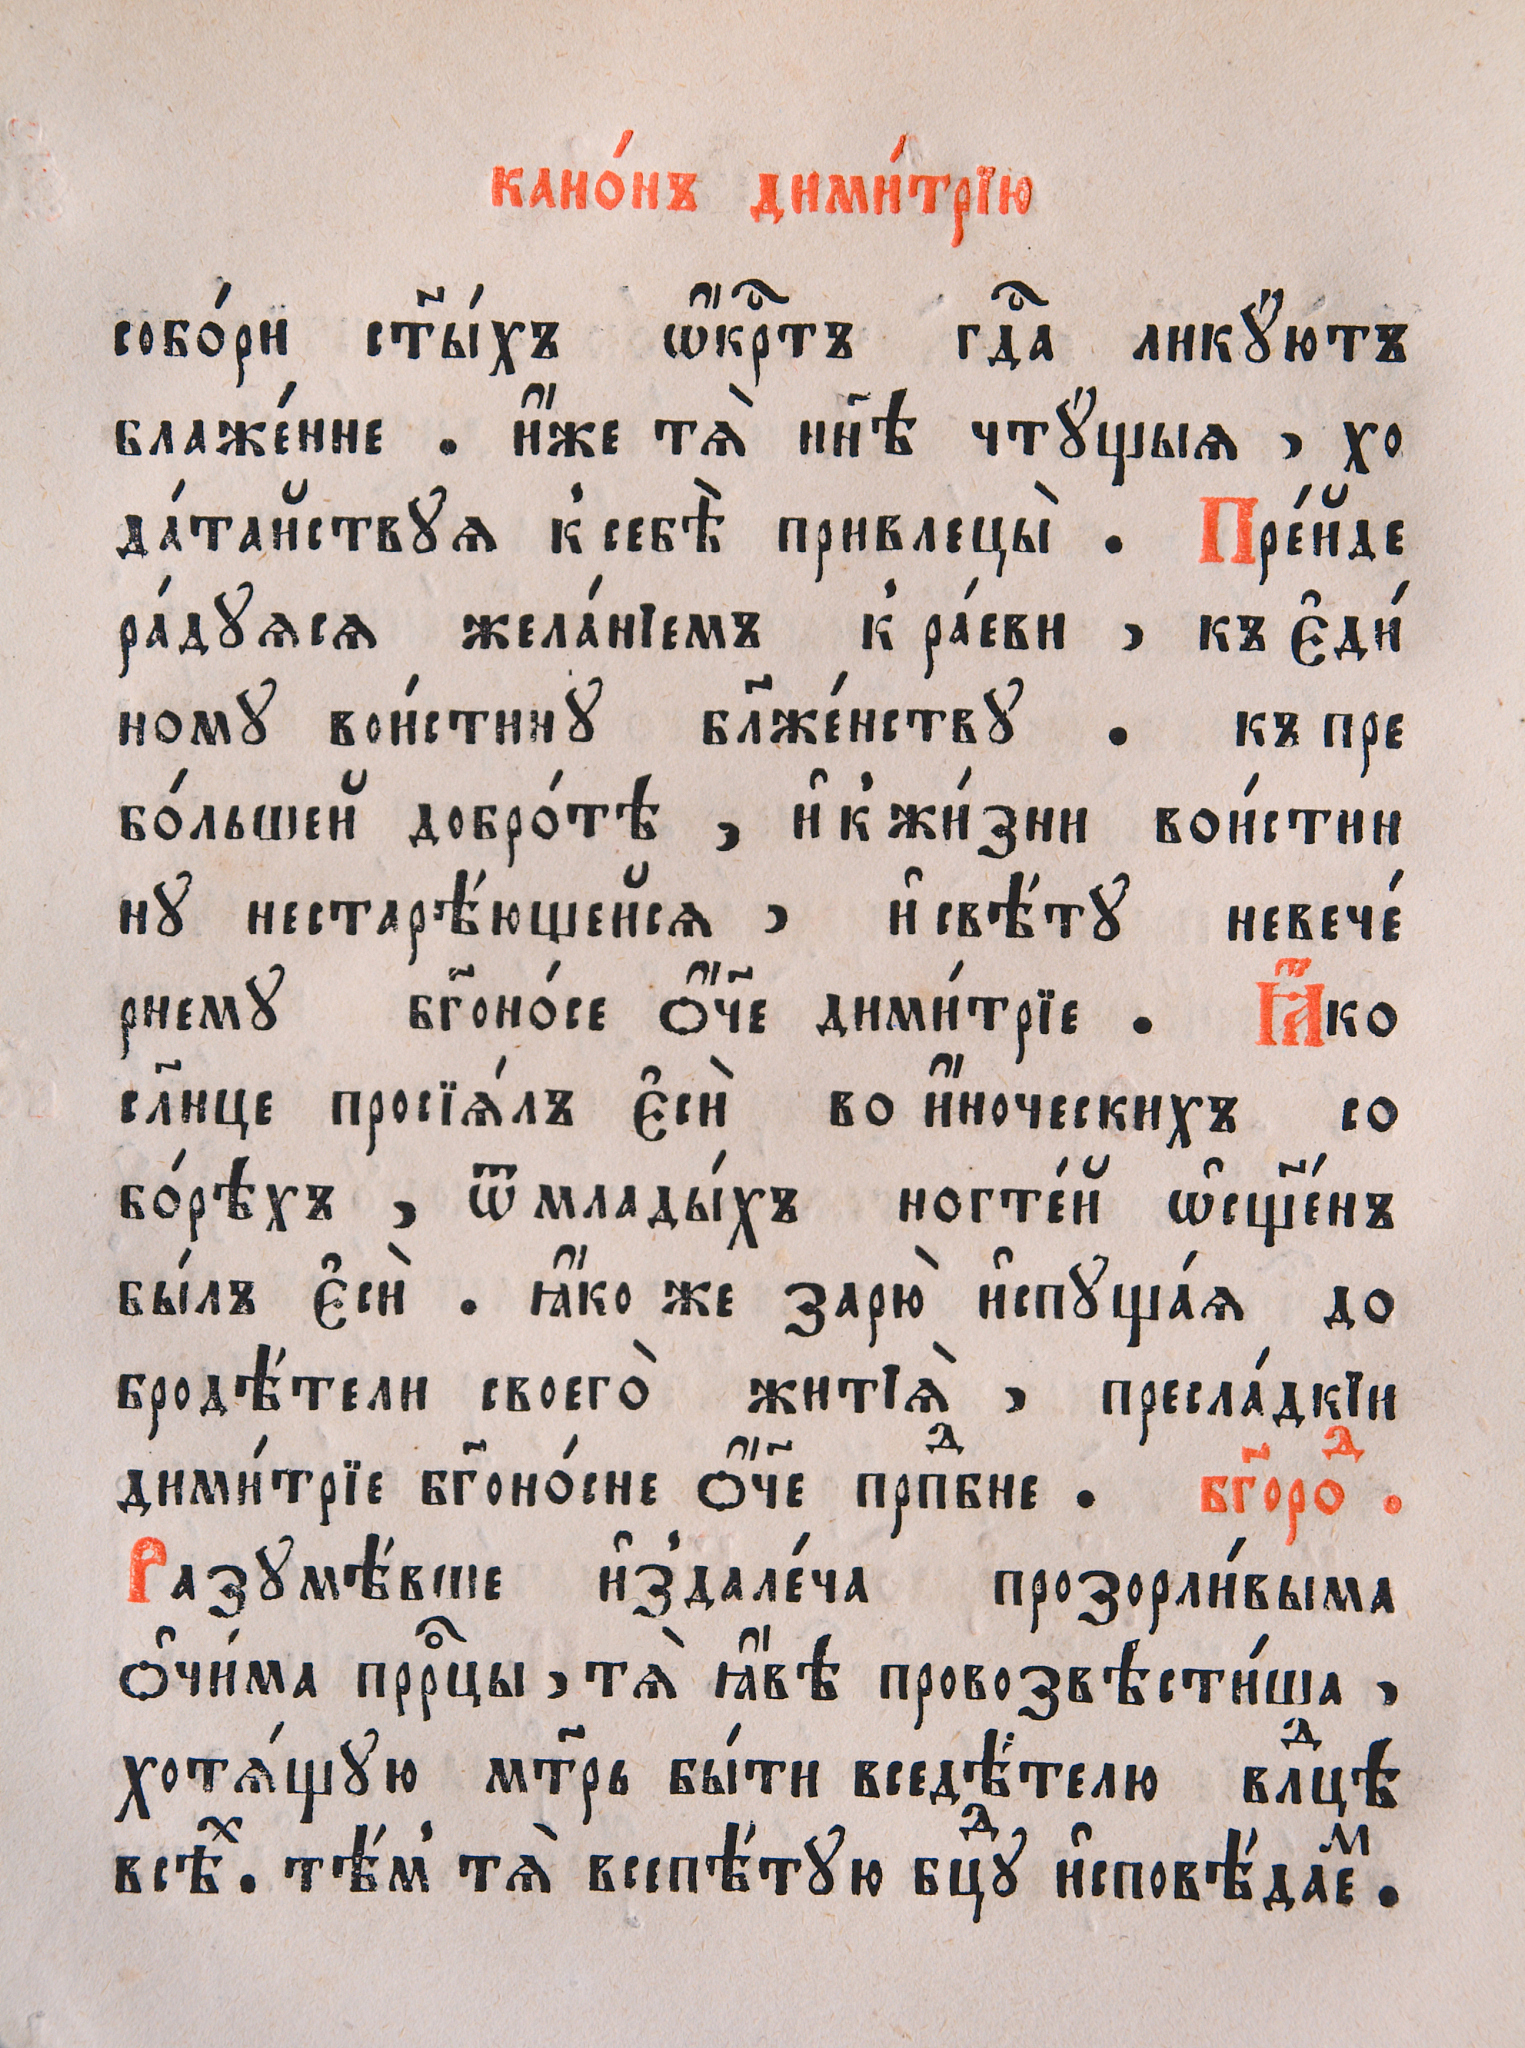 кано́нъ дими́трїю
собо́ри ст҃ы́хъ ѡ҆́крⷭ҇тъ гдⷭ҇а лику́ютъ
блаже́нне . и҆́же тѧ̀ нн҃ѣ чту́щыѧ , хо
да́тайствуѧ к̾себѣ̀ привлецы̀ . Пре́йде
ра́дуѧсѧ жела́нїемъ к̾ ра́еви , къ є҆ди́
ному вои́стинну бл҃же́нству . къ пре
бо́льшей добро́тѣ , и҆ к̾ жи́зни вои́стин
ну нестарѣ́ющейсѧ , и҆ свѣ́ту невече́
рнему бг҃оно́се ѻ҆́ч҃е дими́трїе . Ꙗ҆́ко
сл҃нце просїѧ́лъ є҆сѝ во и҆́ноческихъ со
бо́рѣхъ , ѿ млады́хъ ногте́й ѡ҆сщ҃е́нъ
бы́лъ є҆сѝ . ꙗ҆́ко же зарю̀ и҆спуща́ѧ до
бродѣ́тели своего̀ житїѧ̀ , пресла́дкїи
дими́трїе бг҃оно́сне ѻ҆́ч҃е прпⷣбне . бг҃ороⷣ .
Разумѣ́вше и҆з̾дале́ча прозорли́выма
ѻ҆чи́ма прⷪ҇рцы , тѧ̀ ꙗ҆́вѣ провозвѣсти́ша ,
хотѧ́щую мт҃рь бы́ти вседѣ́телю влⷣцѣ
всѣⷯ . тѣ́м̾ тѧ̀ всепѣ́тую бцⷣу и҆сповѣ́даеⷨ .